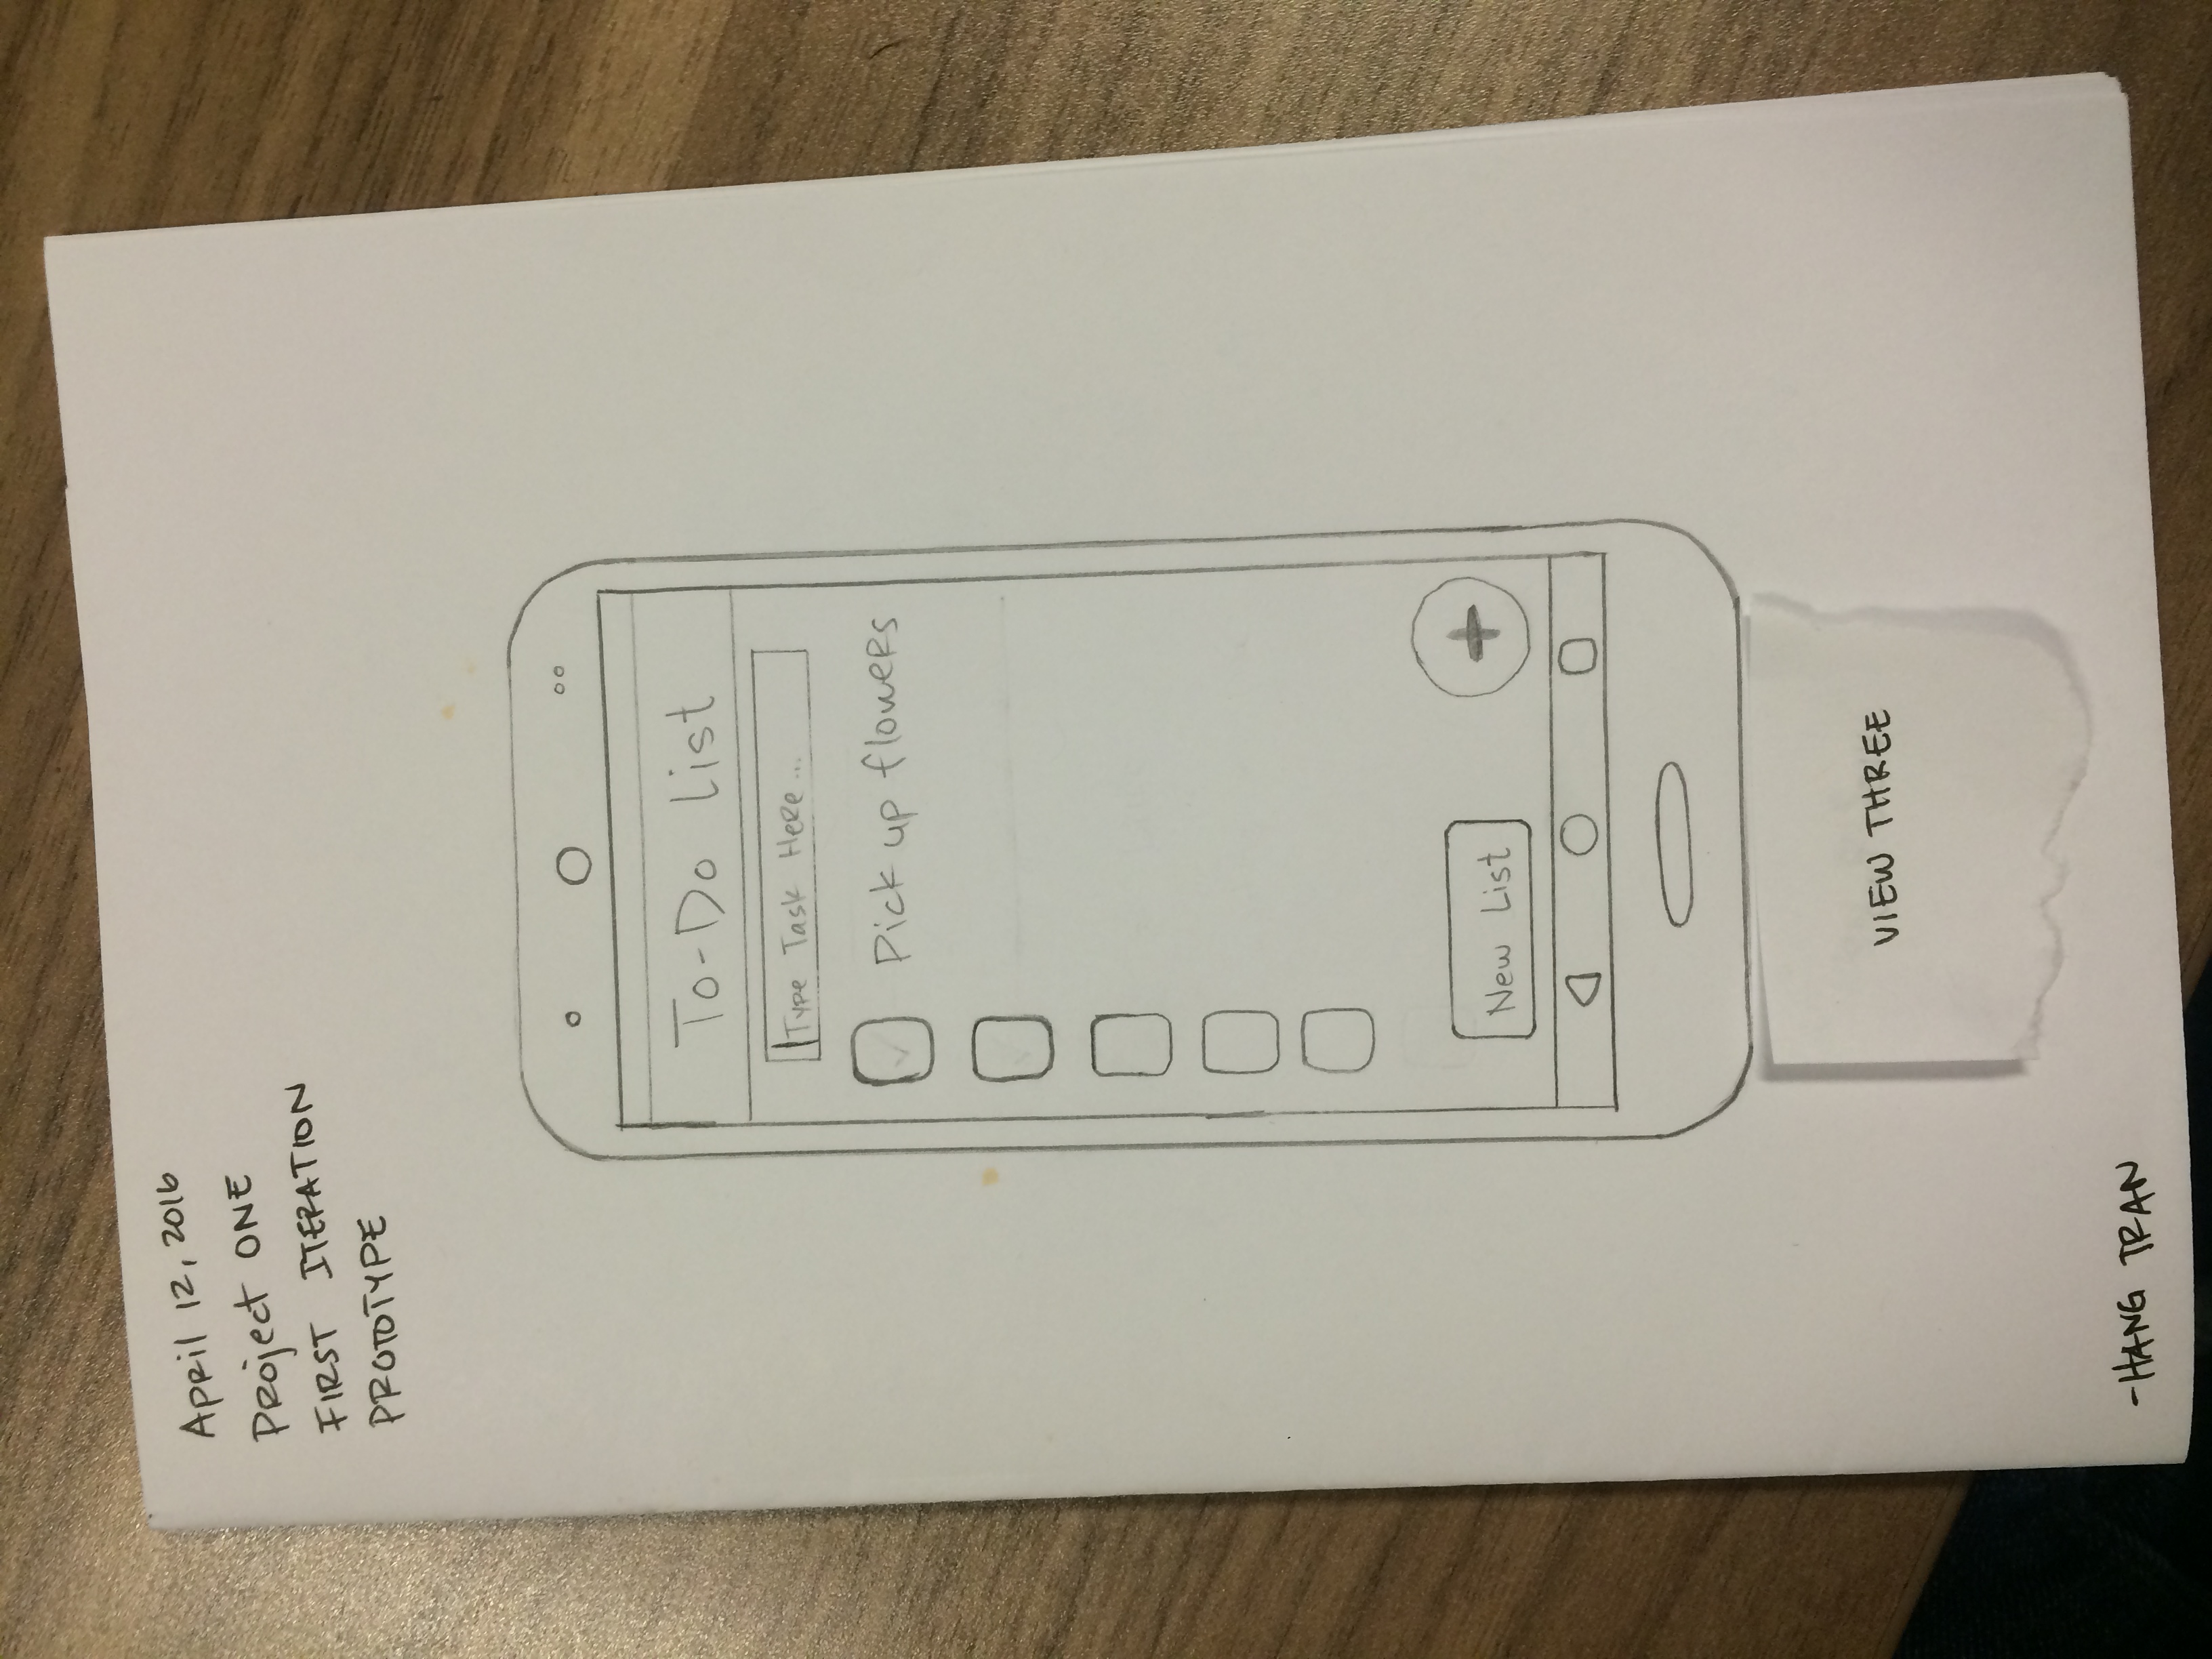 April 12, 2016
Project ONE
FIRST ITERATION
PROTOTYPE
To-Do list
Type Task Here ...
Pick up flowers
New List
VIEW THREE
-HANG TRAN